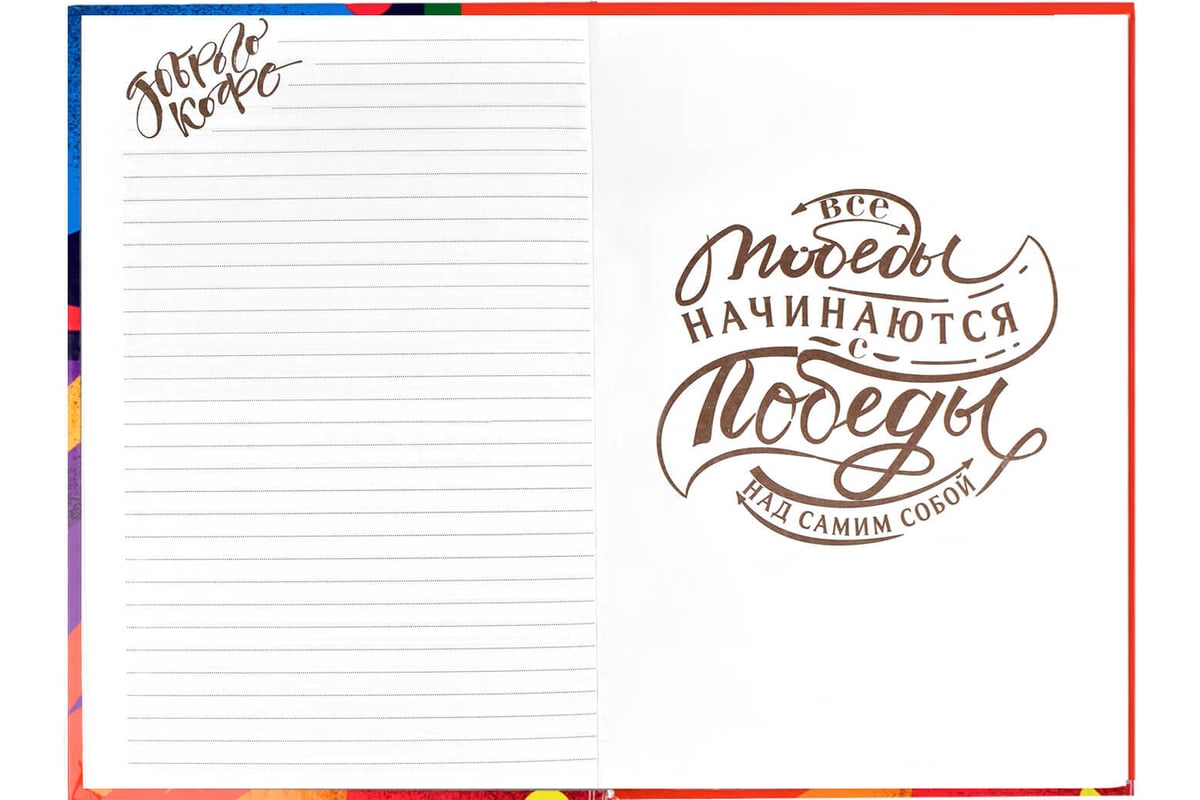 Доброго
кофе
Все
Победы
НАЧИНАЮТСЯ
с
Победы
НАД САМИМ СОБОЙ